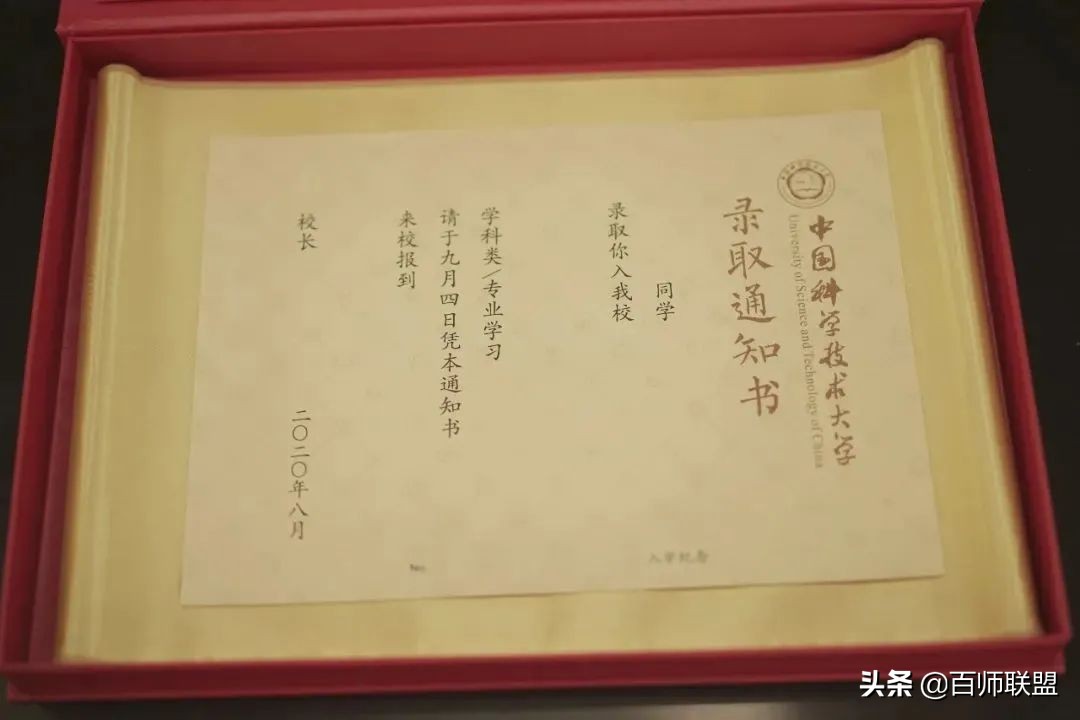 中国科学技术大学
University of Science and Technology of China
录取通知书
同学
录取你入我校
学科类/专业学习
请于九月四日凭本通知书
来校报到
校长
二〇二〇年八月
入学纪念
No.
头条 @百师联盟